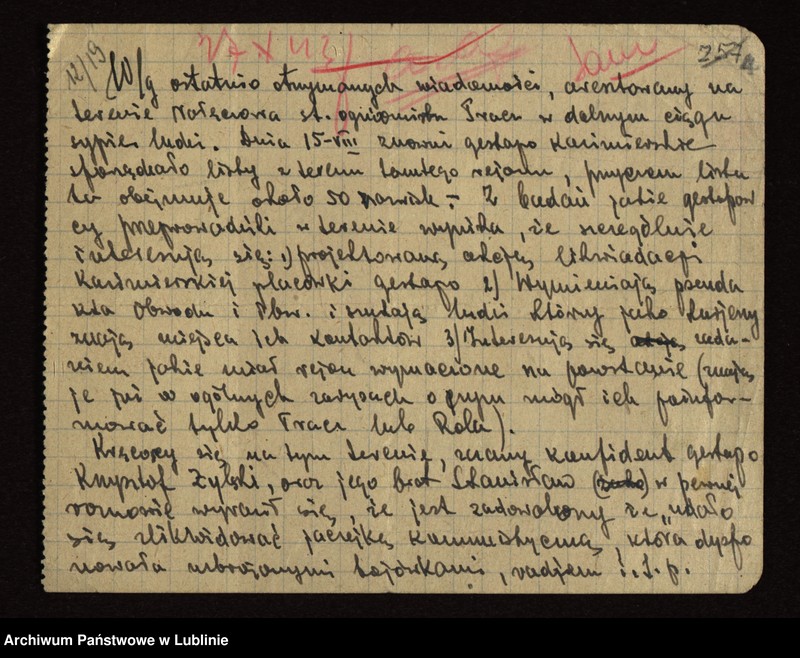 12/19
27 X 43
257
W/g ostatnio otrzymanych wiadomości, aresztowany na
terenie Nałęczowa st. ogniomistrz Tracz w dalszym ciągu
sypie ludzi. Dnia 15-VIII znowu gestapo Kazimierskie
sporządziło listy z terenu tamtego rejonu, przyczem lista
ta obejmuje około 50 nazwisk. – Z badań jakie gestapow
cy przeprowadzili w terenie wynika, że szczególnie
interesują się: 1) projektowaną akcją likwidacji
Kazimierskiej placówki gestapo 2) Wymieniają pseuda
kta Obwodu i i szukają ludzi którzy jako
znają miejsca ich kontaktów 3) Interesują się zada-
niem jakie miał rejon wyznaczone na powstanie (znają
je już w ogólnych zarysach o czym mógł ich poinfor-
mować tylko Tracz lub Rola).
Kręcący się na tym terenie, znany konfident gestapo
Krzysztof Zylski, oraz jego brat Stanisław w pewnej
rozmowie wyraził się, że jest zadowolony że "udało
się zlikwidować jaczejkę komunistyczną, która dyspo
nowała uzbrojonymi bojówkami, radjem i.t.p.
Archiwum Państwowe w Lublinie